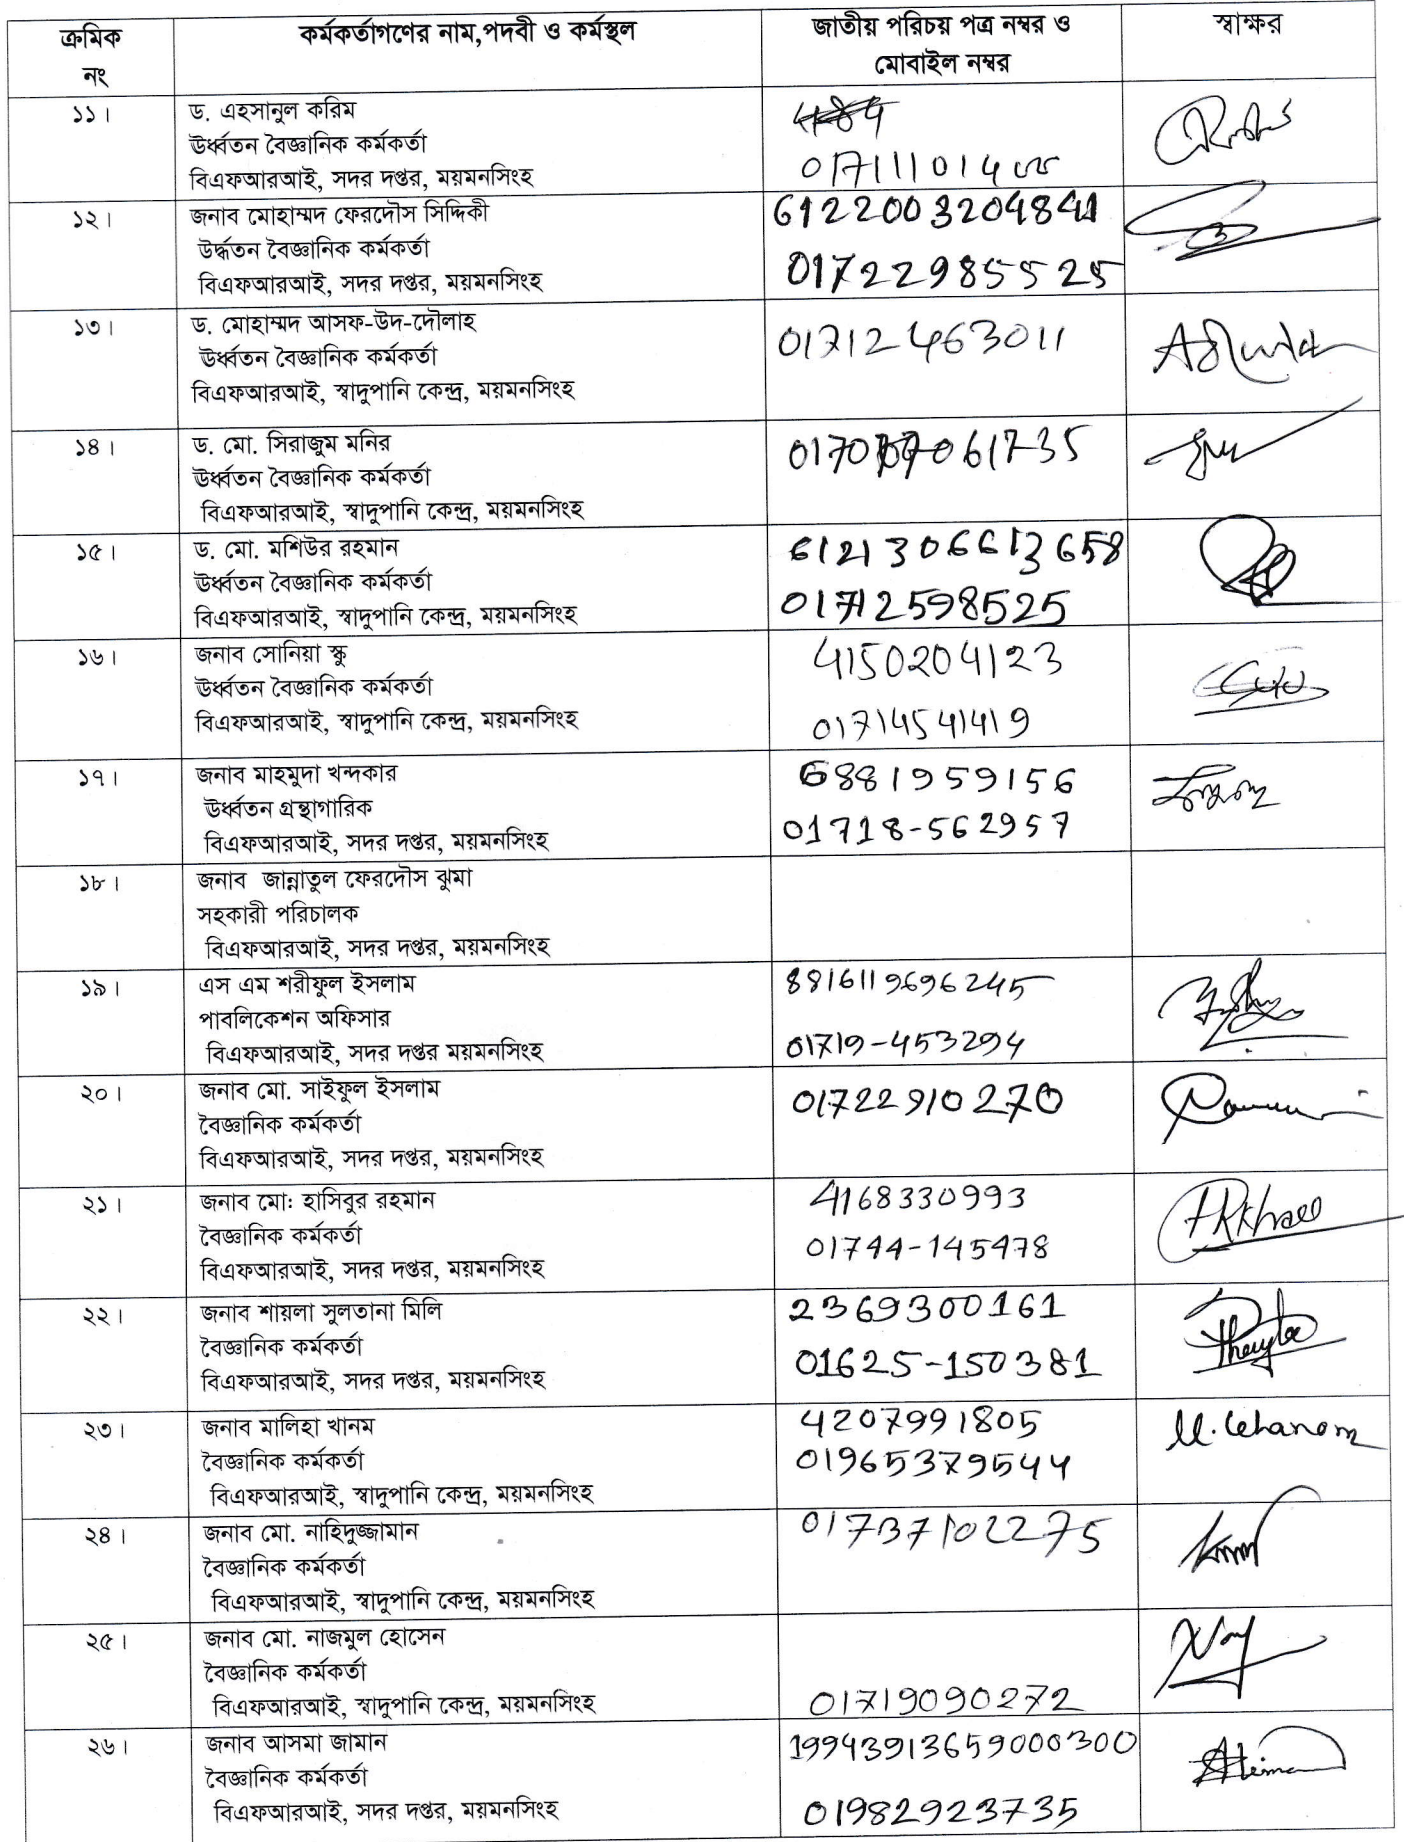 ক্রমিক নং
কর্মকর্তাগণের নাম,পদবী ও কর্মস্থল
জাতীয় পরিচয় পত্র নম্বর ও
মোবাইল নম্বর
স্বাক্ষর
১১।
ড. এহসানুল করিম
ঊর্ধ্বতন বৈজ্ঞানিক কর্মকর্তা
বিএফআরআই, সদর দপ্তর, ময়মনসিংহ
১২।
জনাব মোহাম্মদ ফেরদৌস সিদ্দিকী
উর্দ্ধতন বৈজ্ঞানিক কর্মকর্তা
বিএফআরআই, সদর দপ্তর, ময়মনসিংহ
6122003204841
01722985525
১৩।
ড. মোহাম্মদ আসফ-উদ-দৌলাহ
ঊর্ধ্বতন বৈজ্ঞানিক কর্মকর্তা
বিএফআরআই, স্বাদুপানি কেন্দ্র, ময়মনসিংহ
01712463011
১৪।
ড. মো. সিরাজুম মনির
ঊর্ধ্বতন বৈজ্ঞানিক কর্মকর্তা
বিএফআরআই, স্বাদুপানি কেন্দ্র, ময়মনসিংহ
১৫।
ড. মো. মশিউর রহমান
ঊর্ধ্বতন বৈজ্ঞানিক কর্মকর্তা
বিএফআরআই, স্বাদুপানি কেন্দ্র, ময়মনসিংহ
6121306613658
01712598525
১৬।
জনাব সোনিয়া স্কু
ঊর্ধ্বতন বৈজ্ঞানিক কর্মকর্তা
বিএফআরআই, স্বাদুপানি কেন্দ্র, ময়মনসিংহ
4150204123
01714541419
১৭।
জনাব মাহমুদা খন্দকার
ঊর্ধ্বতন গ্রন্থাগারিক
বিএফআরআই, সদর দপ্তর, ময়মনসিংহ
6881959156
01718-562957
১৮।
জনাব জান্নাতুল ফেরদৌস ঝুমা
সহকারী পরিচালক
বিএফআরআই, সদর দপ্তর, ময়মনসিংহ
১৯।
এস এম শরীফুল ইসলাম
পাবলিকেশন অফিসার
বিএফআরআই, সদর দপ্তর ময়মনসিংহ
8816119696245
01719-453294
২০।
জনাব মো. সাইফুল ইসলাম
বৈজ্ঞানিক কর্মকর্তা
বিএফআরআই, সদর দপ্তর, ময়মনসিংহ
01722910270
২১।
জনাব মোঃ হাসিবুর রহমান
বৈজ্ঞানিক কর্মকর্তা
বিএফআরআই, সদর দপ্তর, ময়মনসিংহ
4168330993
01744-145478
২২।
জনাব শায়লা সুলতানা মিলি
বৈজ্ঞানিক কর্মকর্তা
বিএফআরআই, সদর দপ্তর, ময়মনসিংহ
2369300161
01625-150381
২৩।
জনাব মালিহা খানম
বৈজ্ঞানিক কর্মকর্তা
বিএফআরআই, স্বাদুপানি কেন্দ্র, ময়মনসিংহ
4207991805
01965379544
M. Khanom
২৪।
জনাব মো. নাহিদুজ্জামান
বৈজ্ঞানিক কর্মকর্তা
বিএফআরআই, স্বাদুপানি কেন্দ্র, ময়মনসিংহ
01737102275
২৫।
জনাব মো. নাজমুল হোসেন
বৈজ্ঞানিক কর্মকর্তা
বিএফআরআই, স্বাদুপানি কেন্দ্র, ময়মনসিংহ
01719090272
২৬।
জনাব আসমা জামান
বৈজ্ঞানিক কর্মকর্তা
বিএফআরআই, সদর দপ্তর, ময়মনসিংহ
19943913659000300
01982923735